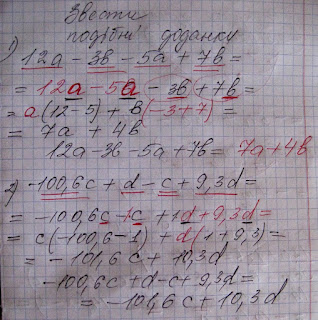 Звести
подібні доданку
1) 12a - 3b - 5a + 7b =
= 12a - 5a - 3b + 7b =
= a(12-5) + b(-3+7) =
= 7a + 4b
12a - 3b - 5a + 7b = 7a + 4b
2) -100,6c + d - c + 9,3d =
= -100,6c - 1c + 1d + 9,3d =
= c(-100,6-1) + d(1+9,3) =
= -101,6c + 10,3d
-100,6c + d - c + 9,3d =
= -101,6c + 10,3d